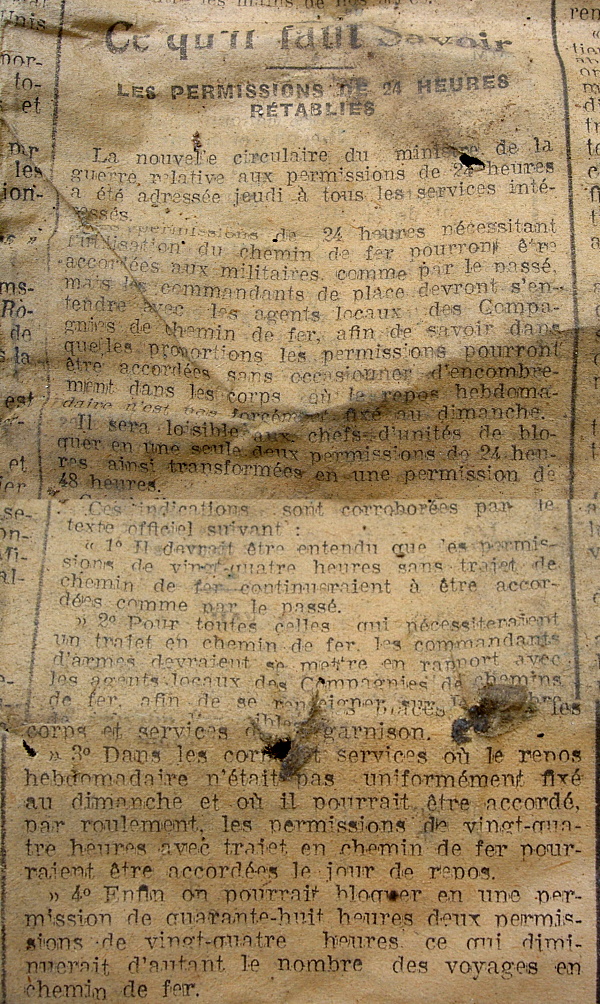 Ce qu'il faut Savoir
LES PERMISSIONS DE 24 HEURES
RÉTABLIES
La nouvelle circulaire du ministère de la
guerre relative aux permissions de 24 heures
a été adressée jeudi à tous les services inté-
ressés.
permissions de 24 heures nécessitant
l'utilisation du chemin de fer pourront être
accordées aux militaires comme par le passé,
mais les commandants de place devront s'en-
tendre avec les agents locaux des Compa-
gnies de chemin de fer, afin de savoir dans
quelles proportions les permissions pourront
être accordées sans occasionner d'encombre-
ment dans les corps où le repos hebdoma-
daire n'est pas forcément fixé au dimanche.
Il sera loisible aux chefs d'unités de blo-
quer en une seule deux permissions de 24 heu-
res ainsi transformées en une permission de
48 heures.
Ces indications sont corroborées par le
texte officiel suivant :
« 1° Il devrait être entendu que les permis-
sions de vingt-quatre heures sans trajet de
chemin de fer continueraient à être accor-
dées comme par le passé.
» 2° Pour toutes celles qui nécessiteraient
un trajet en chemin de fer, les commandants
d'armes devraient se mettre en rapport avec
les agents locaux des Compagnies de chemins
de fer, afin de se renseigner sur les
corps et services garnison.
» 3° Dans les corps et services où le repos
hebdomadaire n'était pas uniformément fixé
au dimanche et où il pourrait être accordé,
par roulement, les permissions de vingt-qua-
tre heures avec trajet en chemin de fer pour-
raient être accordées le jour de repos.
» 4° Enfin on pourrait bloquer en une per-
mission de quarante-huit heures deux permis-
sions de vingt-quatre heures, ce qui dimi-
nuerait d'autant le nombre des voyages en
chemin de fer.